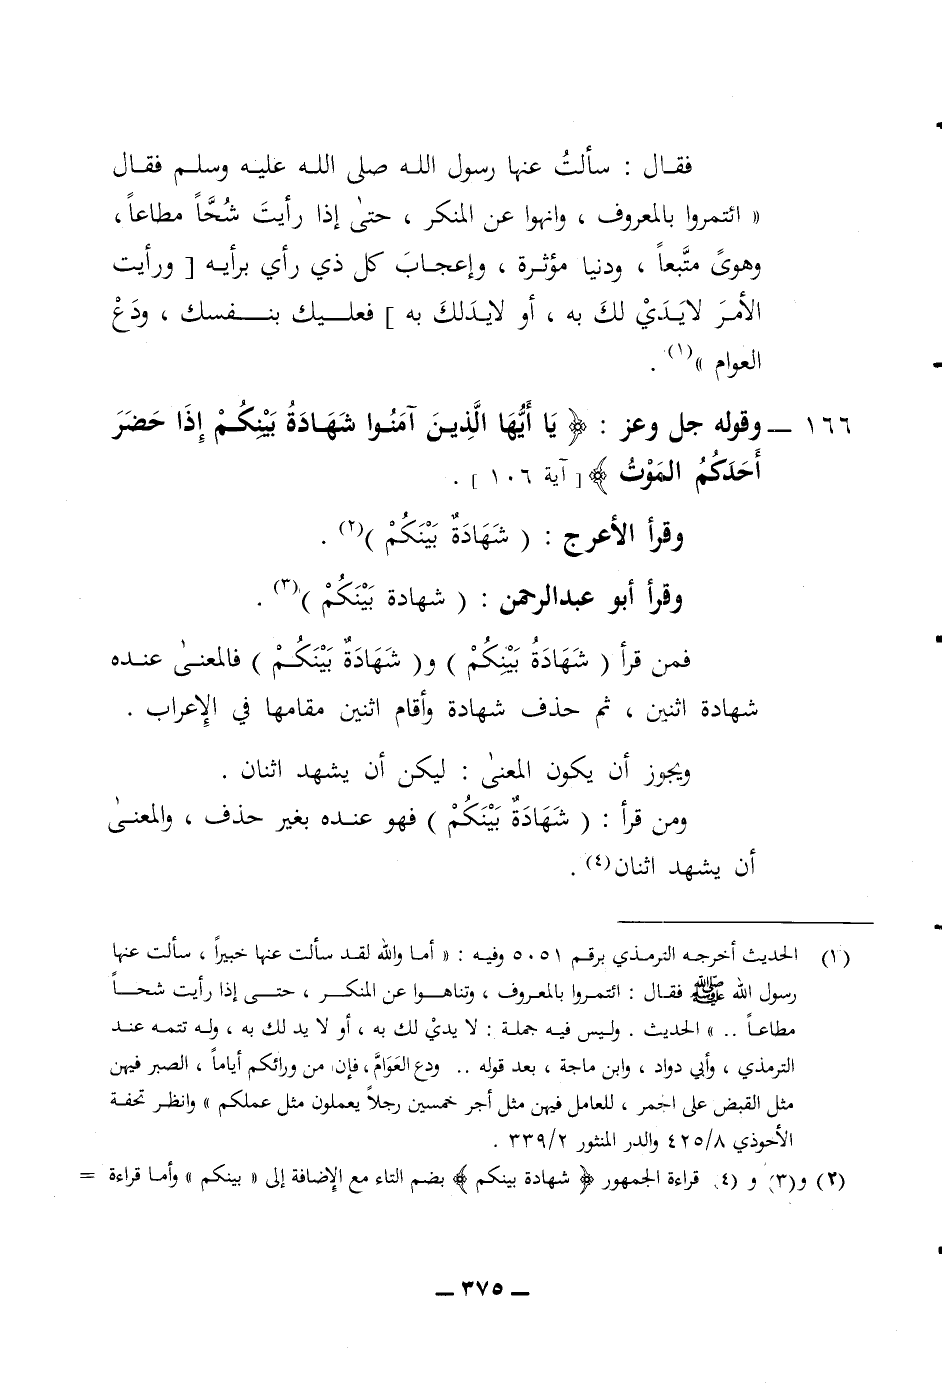 فقال : سألتُ عنها رسول الله صلى الله عليه وسلم فقال
« ائتمروا بالمعروف ، وانهوا عن المنكر ، حتىٰ إذا رأيتَ شُحَّاً مطاعاً ،
وهوىً متَّبعاً ، ودنيا مؤثرة ، وإعجابَ كل ذي رأي برأيه [ ورأيت
الأمرَ لايَدَيْ لكَ به ، أو لايدلكَ به ] فعليك بنفسك ، ودَعْ
العوام »(١) .
١٦٦ ـ وقوله جل وعز : ﴿ يَا أَيُّهَا الَّذِينَ آمَنُوا شَهَادَةُ بَيْنِكُمْ إِذَا حَضَرَ
أَحَدَكُمُ المَوْتُ ﴾ [ آية ١٠٦ ] .
وقرأ الأعرج : ( شَهَادَةٌ بَيْنَكُمْ )(٢) .
وقرأ أبو عبدالرحمن : ( شهادة بَيْنَكُمْ )(٣) .
فمن قرأ ( شَهَادَةُ بَيْنِكُمْ ) و( شَهَادَةٌ بَيْنَكُمْ ) فالمعنىٰ عنده
شهادة اثنين ، ثم حذف شهادة وأقام اثنين مقامها في الإعراب .
ويجوز أن يكون المعنىٰ : ليكن أن يشهد اثنان .
ومن قرأ : ( شَهَادَةٌ بَيْنَكُمْ ) فهو عنده بغير حذف ، والمعنىٰ
أن يشهد اثنان(٤) .
(١) الحديث أخرجه الترمذي برقم ٥٠٥١ وفيه : « أما والله لقد سألت عنها خبيراً ، سألت عنها
رسول الله ﷺ فقال : ائتمروا بالمعروف ، وتناهوا عن المنكر ، حتى إذا رأيت شحاً
مطاعاً .. » الحديث . وليس فيه جملة : لا يديْ لك به ، أو لا يد لك به ، وله تتمه عند
الترمذي ، وأبي دواد ، وابن ماجة ، بعد قوله .. ودع العَوَامَّ ، فإن من ورائكم أياماً ، الصبر فيهن
مثل القبض على الجمر ، للعامل فيهن مثل أجر خمسين رجلاً يعملون مثل عملكم » وانظر تحفة
الأحوذي ٤٢٥/٨ والدر المنثور ٣٣٩/٢ .
(٢) و(٣) و (٤) قراءة الجمهور ﴿ شهادة بينكم ﴾ بضم التاء مع الإضافة إلى « بينكم » وأما قراءة =
ـ ٣٧٥ ـ